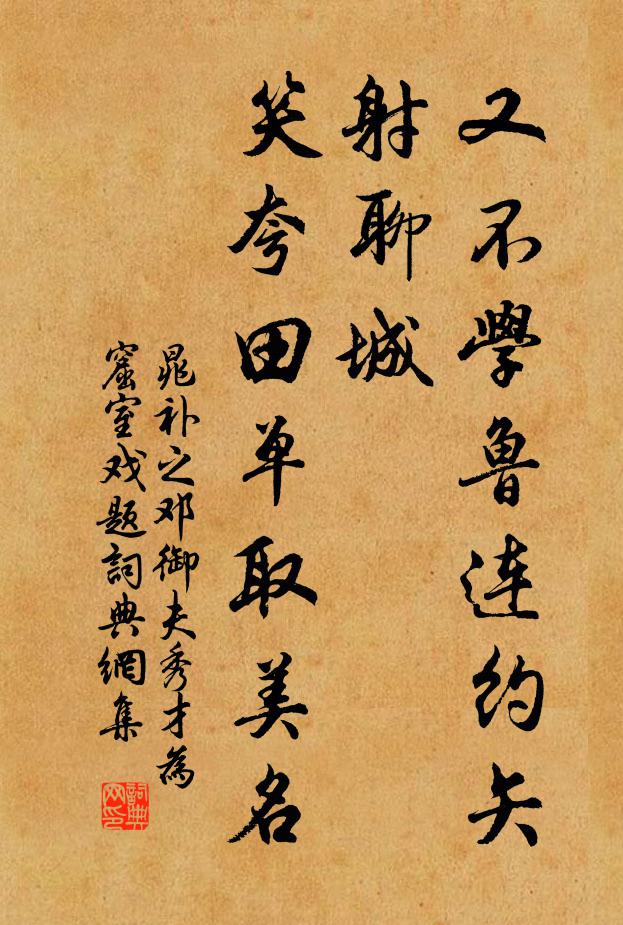 又不學鲁连约矢
射聊城
笑夸田单取美名
晁补之邓御夫秀才為
窟室戏题詞典網集
詞典
网印